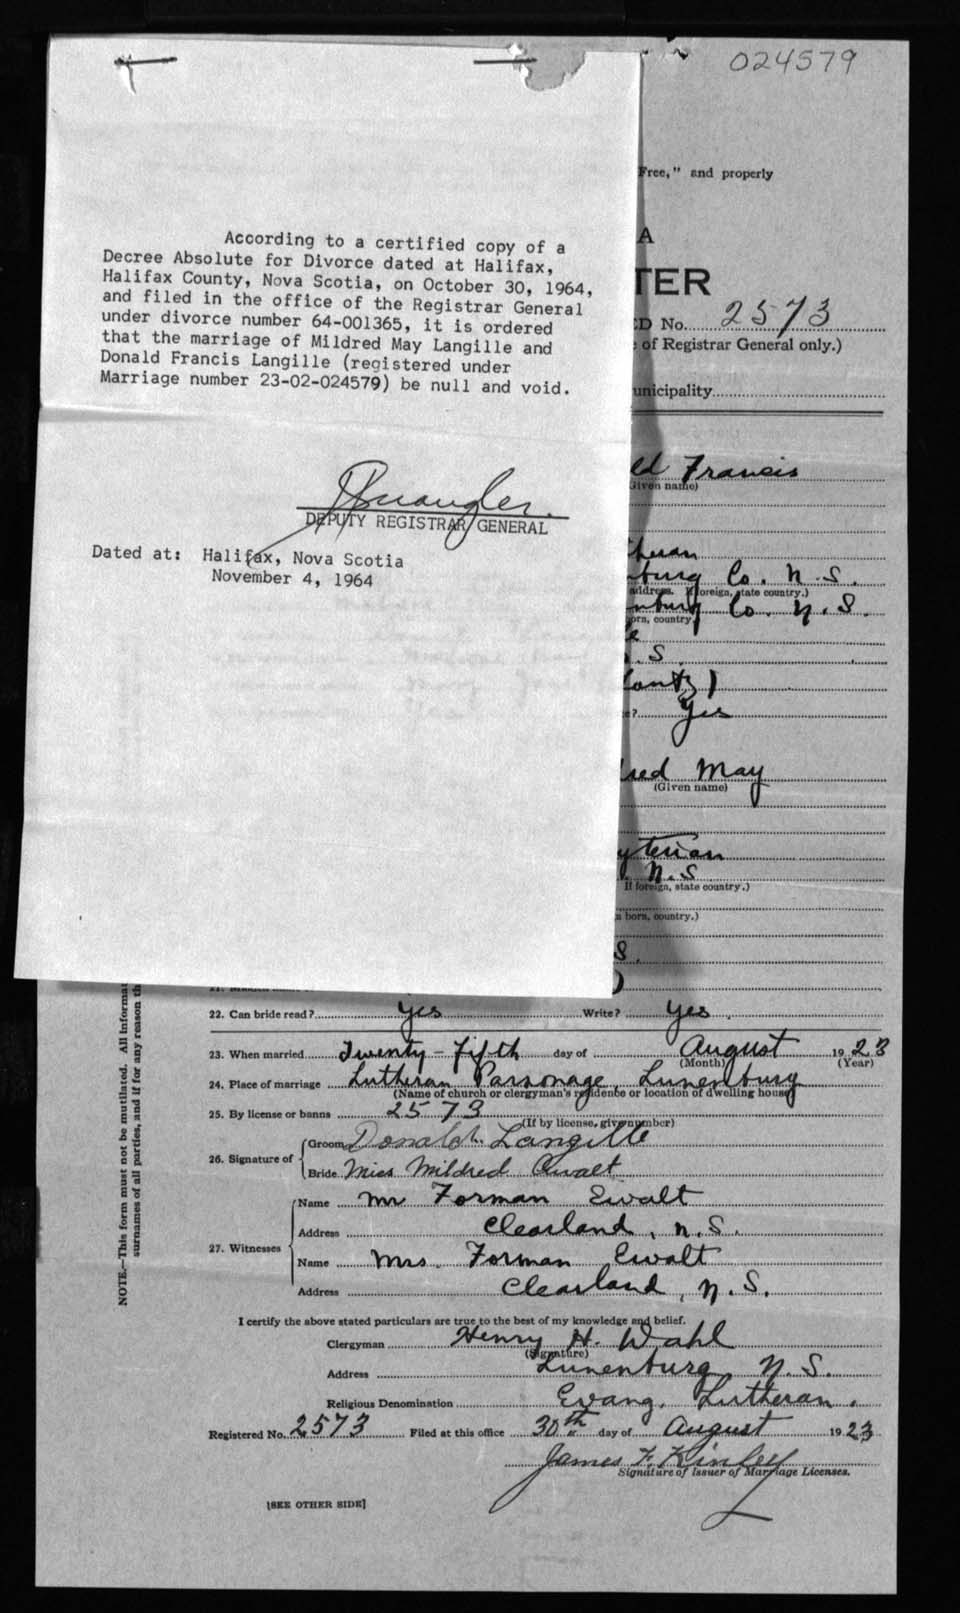 024579
Free," and properly
A
TER
D No. 2573
of Registrar General only.)
unicipality
According to a certified copy of a
Decree Absolute for Divorce dated at Halifax,
Halifax County, Nova Scotia, on October 30, 1964,
and filed in the office of the Registrar General
under divorce number 64-001365, it is ordered
that the marriage of Mildred May Langille and
Donald Francis Langille (registered under
Marriage number 23-02-024579) be null and void.
DEPUTY REGISTRAR GENERAL
Dated at: Halifax, Nova Scotia
November 4, 1964
ld Francis
(Given name)
theran
nburg Co. N.S.
address. If foreign, state country.)
nburg Co. N.S.
orn, country.
e
.S.
Lantz)
e? Yes
dred May
(Given name)
yterian
N.S
If foreign, state country.)
n born, country.)
S.
)
22. Can bride read? Yes Write? Yes.
23. When married Twenty-Fifth day of August 1923
(Month) (Year)
24. Place of marriage Lutheran Parsonage, Lunenburg
(Name of church or clergyman's residence or location of dwelling house)
25. By license or banns 2573
(If by license, give number)
26. Signature of
Groom Donald Langille
Bride Miss Mildred Ewalt
27. Witnesses
Name Mr Forman Ewalt
Address Clearland, N.S.
Name Mrs. Forman Ewalt
Address Clearland, N.S.
I certify the above stated particulars are true to the best of my knowledge and belief.
Clergyman Henry H. Wahl
(Signature)
Address Lunenburg N.S.
Religious Denomination Evang. Lutheran.
Registered No. 2573 Filed at this office 30th day of August 1923
James F. Kinley
Signature of Issuer of Marriage Licenses.
[SEE OTHER SIDE]
NOTE.—This form must not be mutilated. All informa
surnames of all parties, and if for any reason th